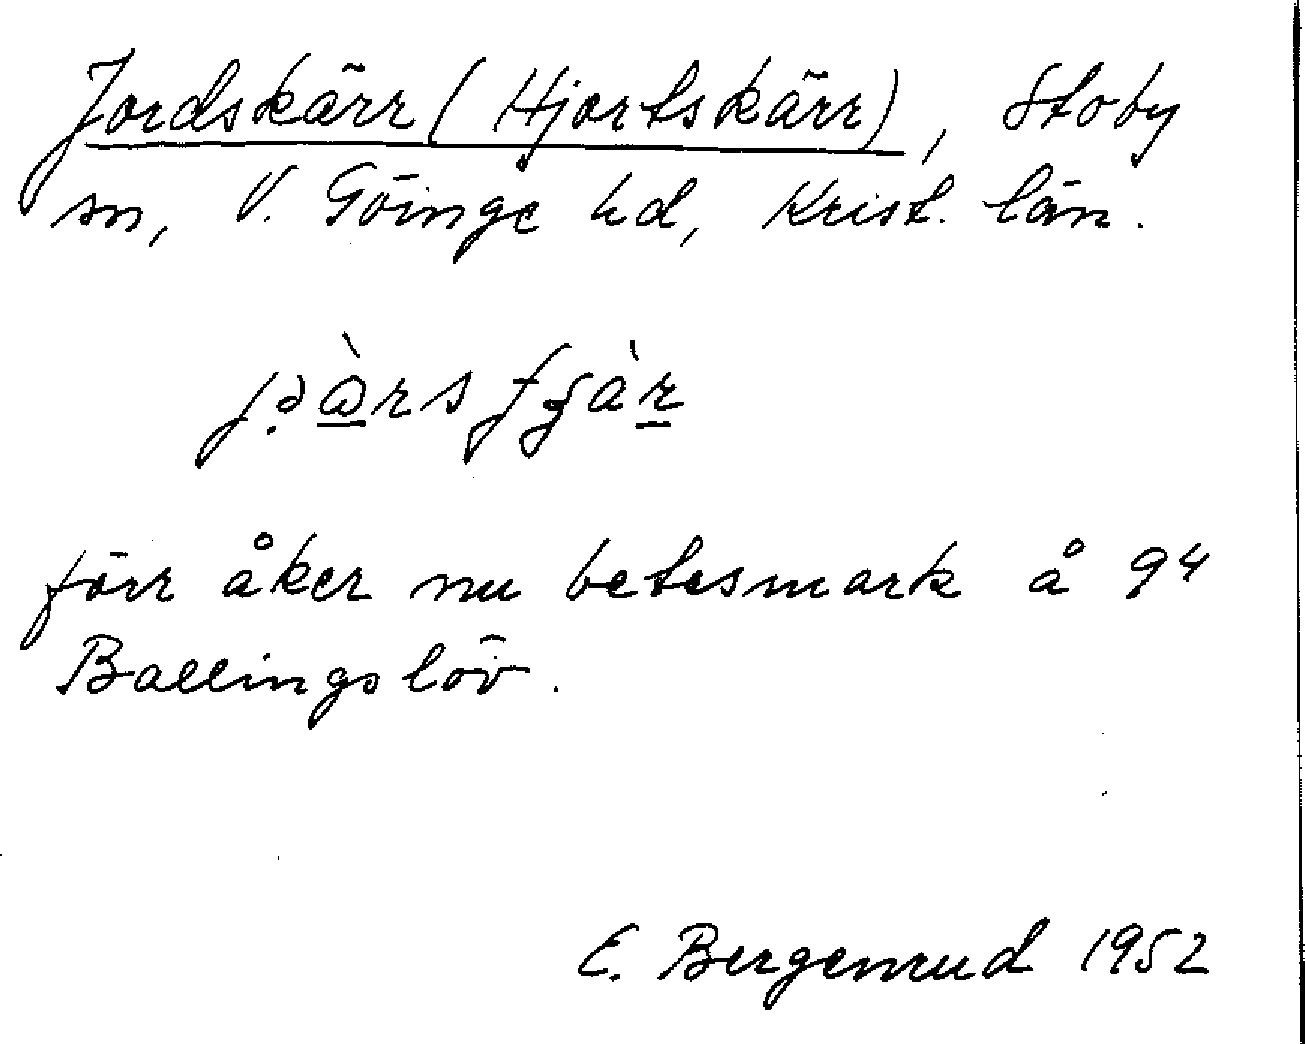 Jordskärr (Hjortskärr), Stoby
sn, V. Göinge hd, Krist. län.
förr åker nu betesmark å 94
Ballingslöv.
E. Bergenrud 1952